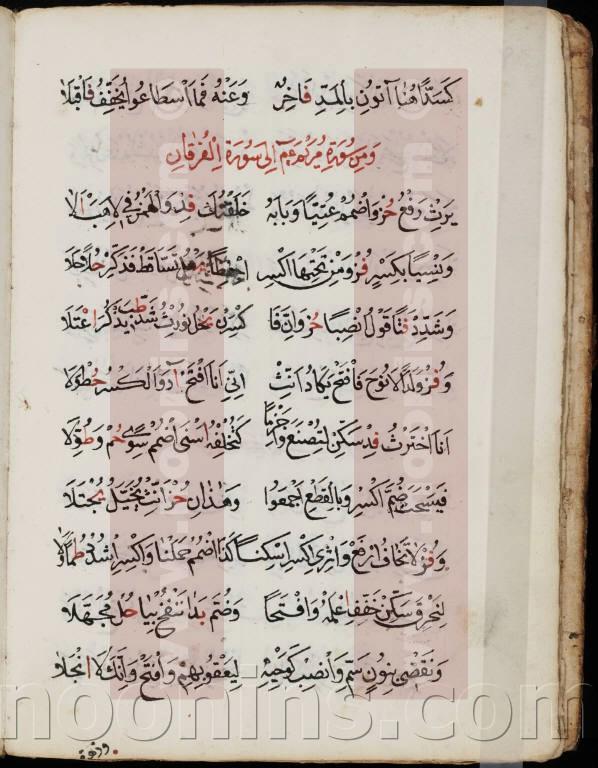 كَسَدًّا هُنَا آتُونِ بِالْمَدِّ فَاخِرٌ وَعَنْهُ فَمَا اسْطَاعُوا يُخَفِّفُ فَاقْبَلَا
وَمِنْ سُورَةِ مَرْيَمَ إِلَى سُورَةِ الْفُرْقَانِ
يَرِثْ رَفْعُ حُزْ وَاضْمُمْ عُتِيًّا وَبَابَهُ خَلَقْتُكَ فِدْ وَالْهَمْزُ فِي لِأَهَبْ أَلَا
وَنِسْيًا بِكَسْرٍ فُزْ وَمَنْ تَحْتَهَا اكْسِرِ اخْفِضًا يَعْلُ تَسَاقَطْ فَذَكِّرْ حُلًا حَلَا
وَشَدِّدْ فَتًا قَوْلُ انْصِبًا حُزْ وَإِنَّ فَا كْسِرَنْ يَحْلُ نُورِثُ شُدَّ طِبْ يَذْكُرُ اعْتَلَا
وَفُزْ وَلَدًا لَا نُوحَ فَافْتَحْ يَكَادُ أَنِّثْ إِنِّي أَنَا افْتَحْ آدَ وَالْكَسْرُ حُطْ وَلَا
أَنَا اخْتَرْتُ فِدْ سَكِّنْ لِتُصْنَعَ وَاجْزِمًا كَنُخْلِفْهُ أَسْنَى اضْمُمْ سُوًى حُمْ وَطُوِّلَا
فَيَسْحَتَ ضُمَّ اكْسِرْ وَبِالْقَطْعِ أَجْمِعُوا وَهَذَانِ حُزْ أَنِّثْ يُخَيَّلُ يُجْتَلَا
وَفُزْ لَا تَخَافُ ارْفَعْ وَإِثْرِي اكْسِرِ اسْكِنًا كَذَا اضْمُمْ حَمَلْنَا وَاكْسِرِ اشْدُدْ طَمَا وَلَا
لِنُحْرِقَ سَكِّنْ خَفِّفِ اعْلَمْهُ وَافْتَحًا وَضُمَّ بَدَا نَنْفُخْ بِيَا حُلْ مُجَهَّلَا
وَنَقْضِي بِنُونٍ سَمِّ وَانْصِبْ كَوَحْيُهُ لِيَعْقُوبِهِمْ وَافْتَحْ وَإِنَّكَ لَا انْجَلَا
noonins.com